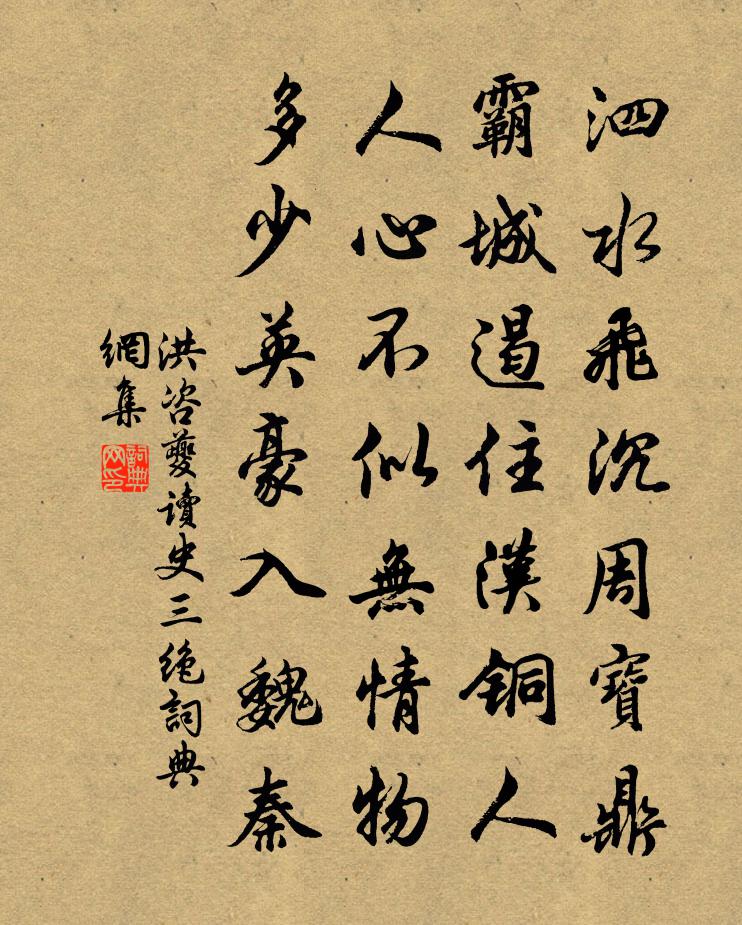 泗水飛沉周寶鼎
霸城遏住漢銅人
人心不似無情物
多少英豪入魏秦
洪咨夔讀史三絶詞典
網集
詞典網印